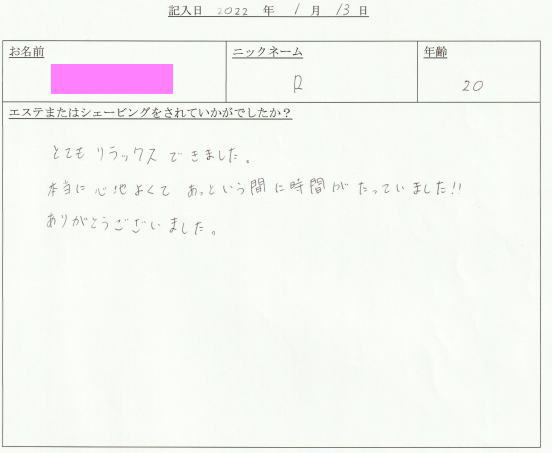 記入日 2022 年 1 月 13 日
お名前 ニックネーム 年齢
R 20
エステまたはシェービングをされていかがでしたか？
とても リラックス できました。
本当に 心地よくて あっという間に時間が たっていました!!
ありがとうございました。